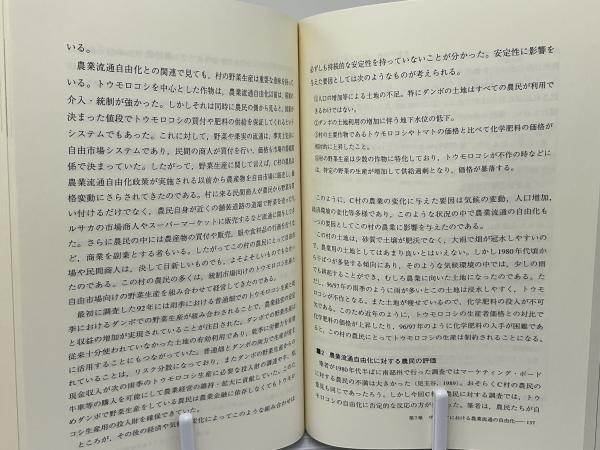 いる。
農業流通自由化との関連で見ても、村の野菜生産は重要な意味を持って
いる。トウモロコシを中心とした作物は、農業流通自由化以前は、政府の
介入・統制が強かった。しかしそれは同時に農民の側から見ると、政府が
決まった値段でトウモロコシの買付や肥料の供給を保証してくれるという
システムでもあった。これに対して、野菜や果実の流通は、事実上完全に
自由市場システムであり、民間の商人が買付を行い、価格も市場の需給関
係で決まっていた。したがって、野菜生産に関して言えば、C村の農民は
農業流通自由化政策が実施される以前から農産物を自由市場に出荷し、
価格変動にさらされてきたのである。村に来る民間商人が農民から野菜を買
い付けるだけでなく、農民自身が近くの舗装道路の道端で野菜を売ったり
ルサカの市場商人やスーパーマーケットに販売するなど流通に関与してき
た。さらに農民の中には農産物の買付や販売、服や食料品の行商を行うな
ど、商業を副業とする者もいる。したがってこの村の農民にとって自由市
場や民間商人は、決して目新しいものでも、よそよそしいものでもなかっ
たのである。この村の農民の多くは、統制市場向けのトウモロコシ生産と
自由市場向けの野菜生産を組み合わせて経営してきたのである。
最初に調査した92年には雨季における普通畑でのトウモロコシ生産と乾
季におけるダンボでの野菜生産が組み合わされることで、農業経営の安定
と収益の増加が実現されていることが注目された。ダンボでの野菜生産は
従来十分使われていなかった土地の有効利用であり、乾季に労働力を有効
に活用することにもつながっていた。普通畑とダンボの両方で生産が行わ
れていることは、リスク分散になっており、またダンボの野菜生産による
現金収入が次の雨季のトウモロコシ生産に必要な投入財の調達や牛、
牛車等の購入を可能にして農業経営の維持・拡大に貢献していた。このた
めダンボで野菜生産をしている農民は農業金融に依存しなくてもトウモロ
コシ生産用の投入財を確保できていた。
ところが、その後の経済や気候の変化によってこのような組み合わせは
必ずしも持続的な安定性を持っていないことが分かった。安定性に影響を
与えた要因としては次のようなものが考えられる。
①人口の増加等による土地の不足。特にダンボの土地はすべての農民が利用で
きるわけではない。
②ダンボの土地利用の増加に伴う地下水位の低下。
③村の主要作物であるトウモロコシやトマトの価格と比べて化学肥料の価格が
相対的に上昇したこと。
④村の野菜生産は少数の作物に特化しており、トウモロコシが不作の時などに
は、特定の野菜の生産が増加して供給過剰となり、価格が暴落する。
このように、C村の農業の変化に与えた要因は気候の変動、人口増加、
経済環境の変化等多様であり、このような状況の中で農業流通の自由化も
一つの要因としてこの村の農業に影響を与えたのである。
この村の土地は、砂質で土壌が肥沃でなく、大雨で畑が冠水しやすいの
で、農業用の土地としてはあまり良いとはいえない。しかし1980年代頃か
ら干ばつが多発する傾向にあり、そのような気候環境の中では、少しの雨
でも耕起することができ、むしろ農業に向いた土地になったのである。た
だ、96/97年の雨季のように雨が多いとこの土地は浸水しやすく、トウモ
ロコシが不作となる。また土地が痩せているので、化学肥料の投入が不可
欠である。このため近年のように、トウモロコシの生産者価格との対比で
化学肥料の価格が上昇したり、96/97年のように化学肥料の入手が困難であ
ると、この村の農民にとってトウモロコシの生産は制約されることになる。
■2　農業流通自由化に対する農民の評価
筆者が1980年代半ばに南部州で行った調査ではマーケティング・ボード
に対する農民の不満は大きかった（児玉谷, 1989）。おそらくC村の農民の
も同じであったろう。しかし今回C村の農民に対する調査では、トウ
モロコシの自由化に否定的な反応の方が
った。筆者は、農民たちが自
第3章
における農業流通の自由化―― 137